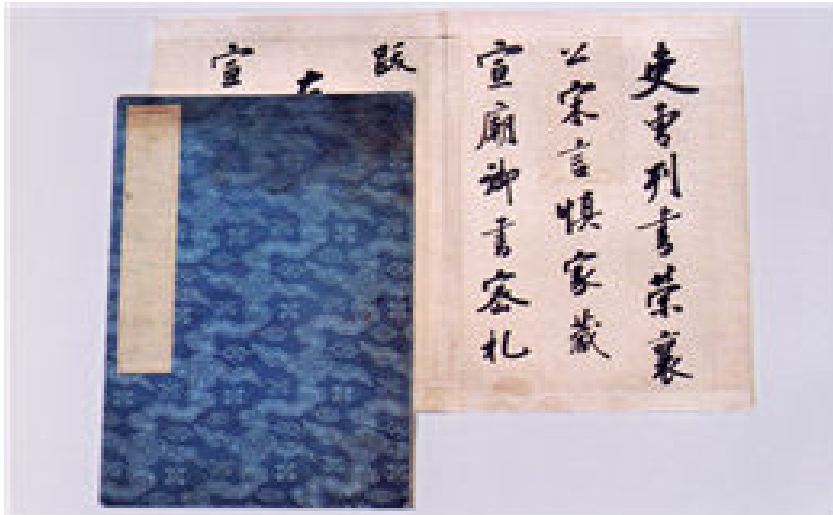 吏曺判書榮襄
公宋言愼家藏
宣廟御書密札
跋
宣